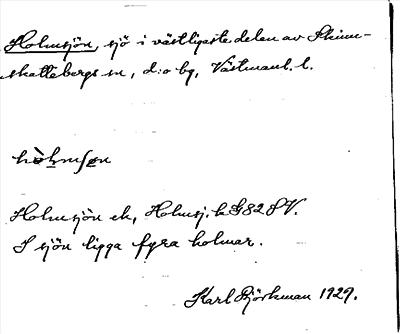 Holmsjön, sjö i västligaste delen av Skinn-
skattebergs sn, d:o bg, Västmanl. l.
hòlmsøn
Holmsjön ek, Holmsj. k G82 SV.
I sjön ligga fyra holmar.
Karl Björkman 1929.